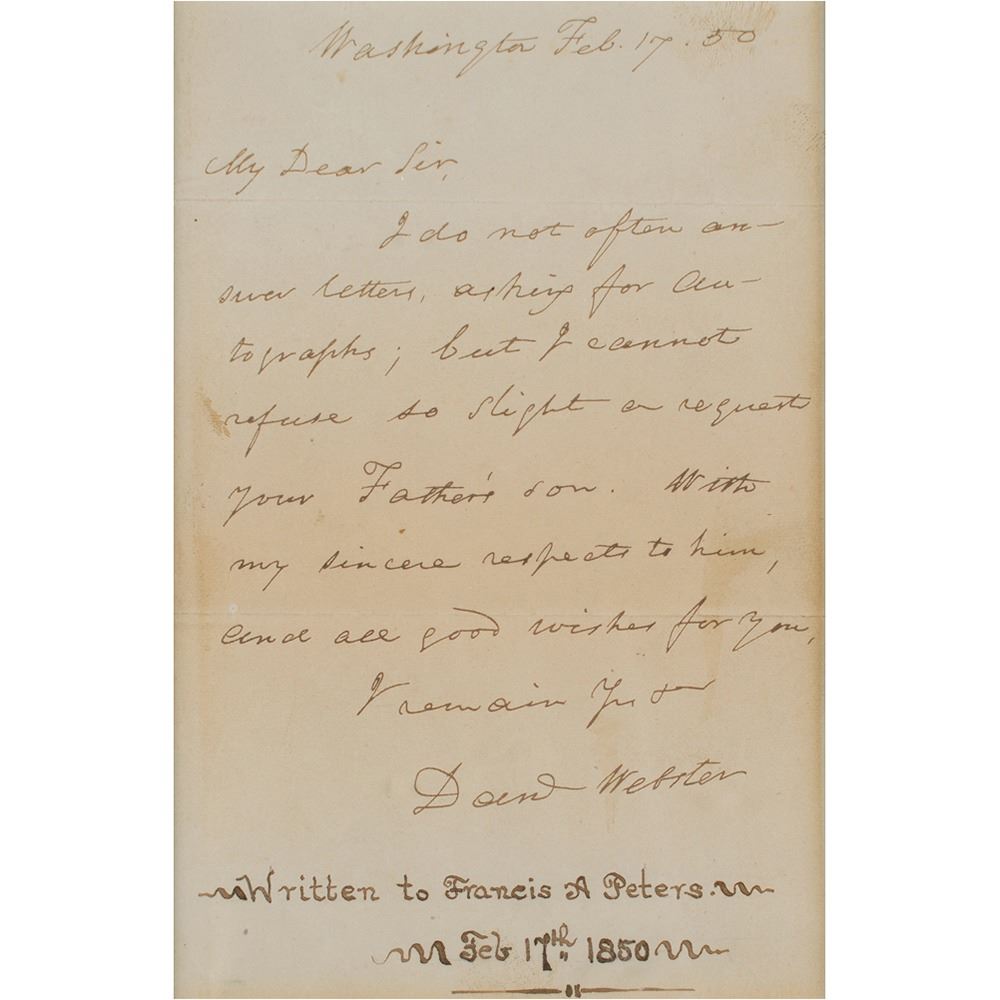 Washington Feb. 17. 50
My Dear Sir,
I do not often an-
swer letters, asking for au-
tographs; but I cannot
refuse so slight a request
your Father's son. With
my sincere respects to him,
and all good wishes for you,
I remain Yrs &c
Danl Webster
Written to Francis A Peters.
Feb 17th 1850